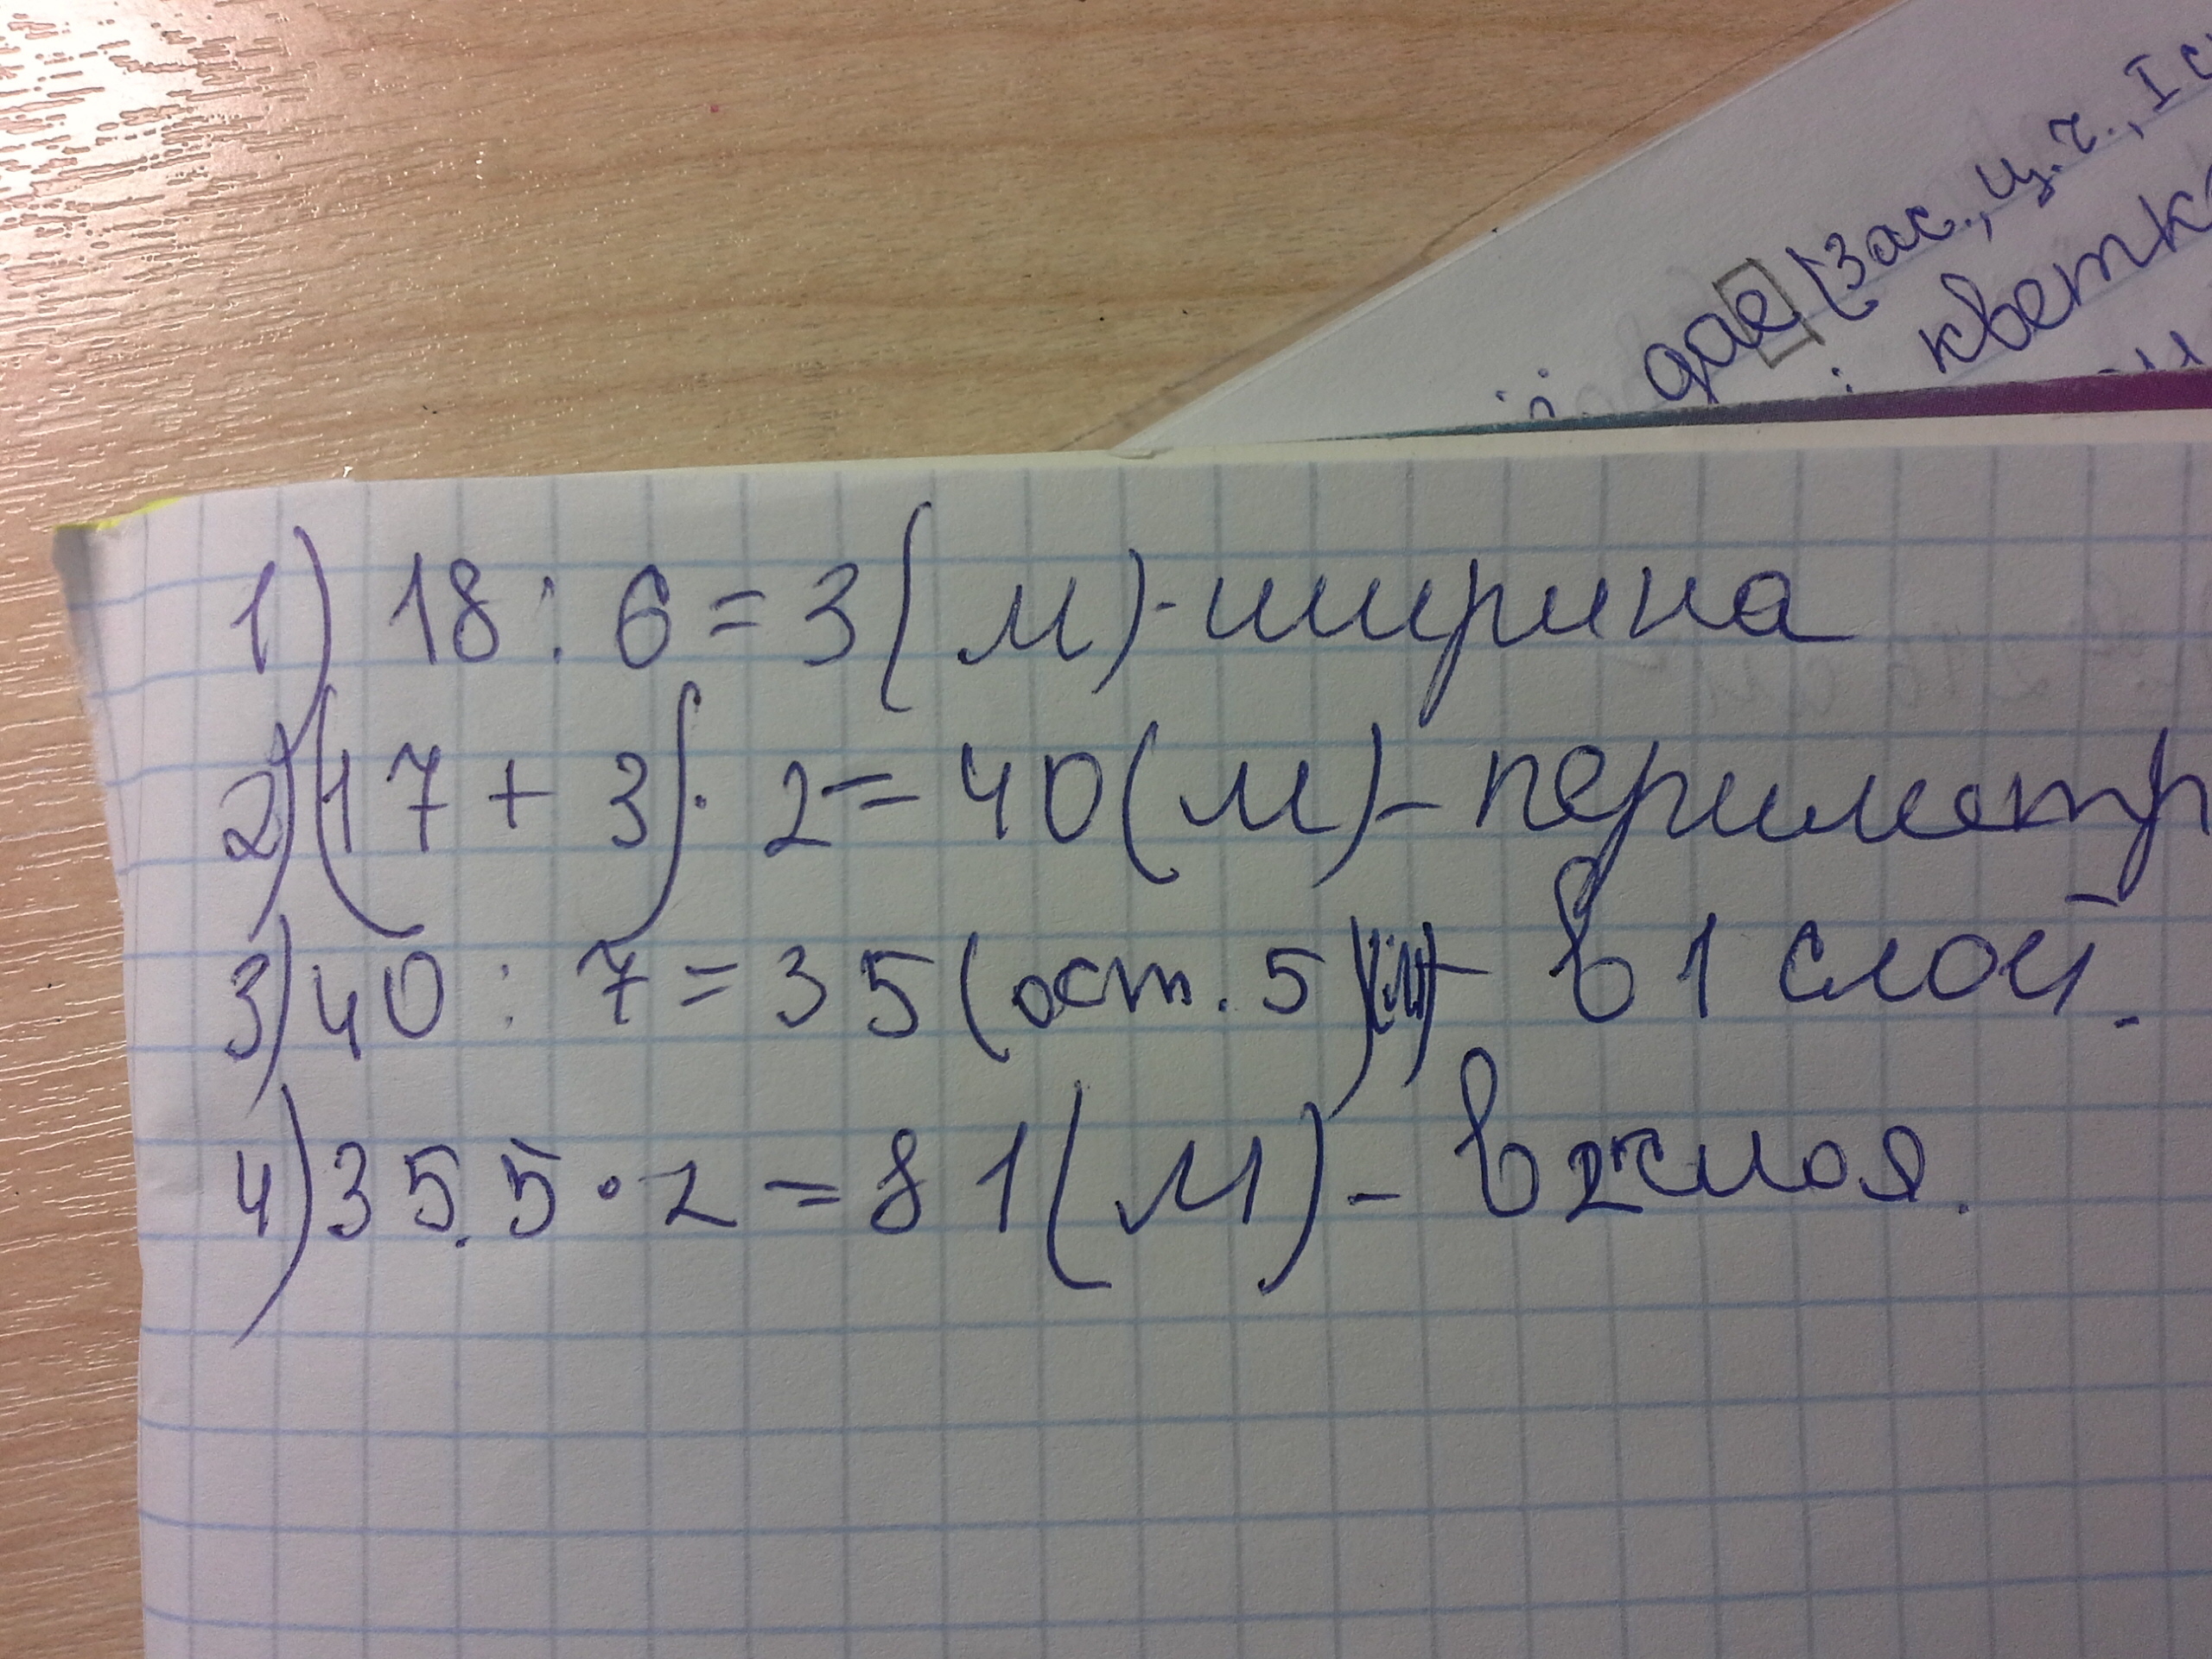 дае (Зас., ц.ч., I
кветк
1) 18 : 6 = 3 (м) - ширина
2) (17 + 3) · 2 = 40 (м) - периметр
3) 40 : 7 = 35 (ост. 5) (м) - в 1 слой.
4) 35.5 · 2 = 81 (м) - в 2 слоя.